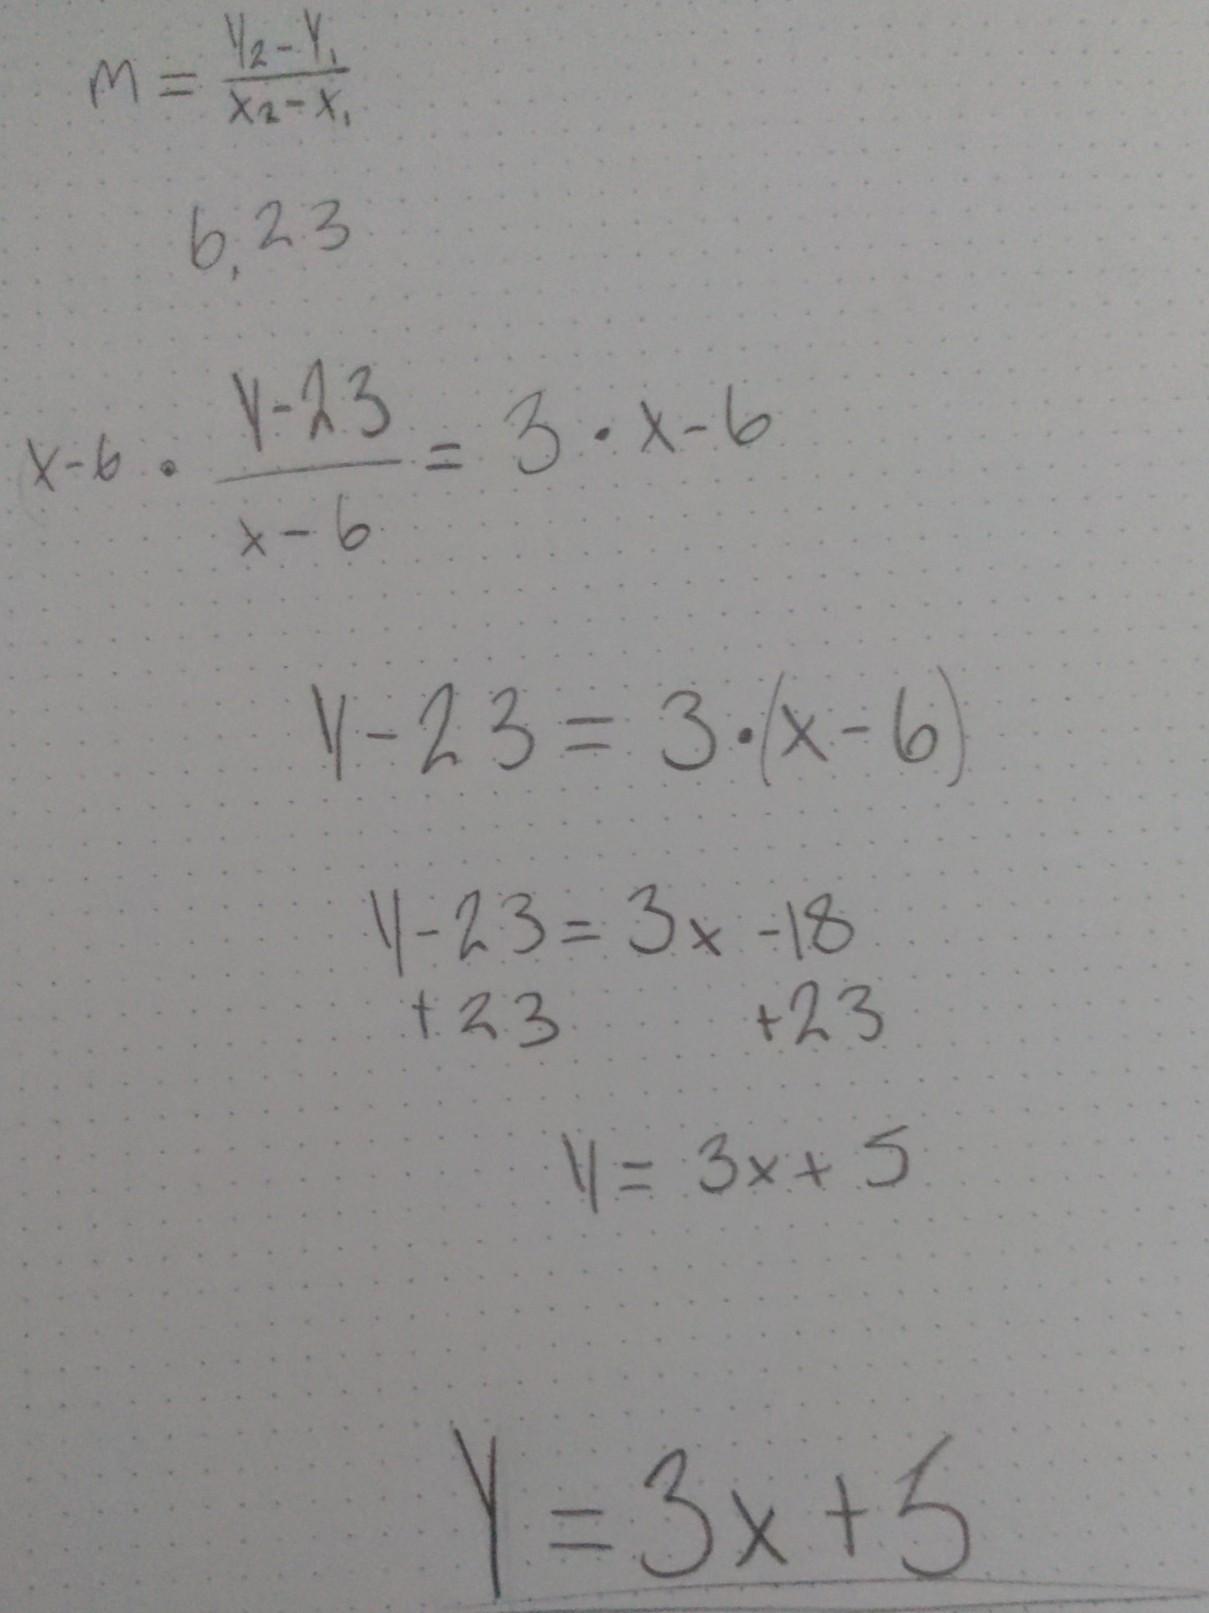 m = y₂-y₁/x₂-x₁
6,23
x-6 · y-23/x-6 = 3 · x-6
y-23 = 3·(x-6)
y-23 = 3x -18
+23 +23
y = 3x + 5
y = 3x + 5